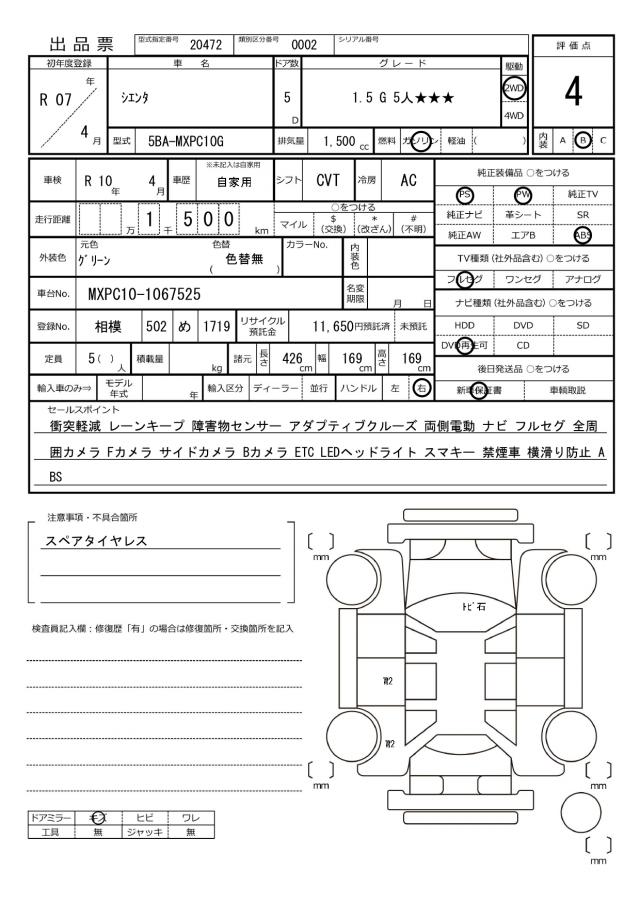 出品票
型式指定番号 20472 類別区分番号 0002 シリアル番号
評価点
4
初年度登録 車名 ドア数 グレード 駆動
R 07 年 4 月
シエンタ
5 D
1.5 G 5人★★★
2WD
4WD
型式 5BA-MXPC10G 排気量 1,500 cc 燃料 ガソリン 軽油 ( )
内装 A B C
車検 R 10 年 4 月 車歴 ※未記入は自家用 自家用 シフト CVT 冷房 AC
純正装備品 ○をつける
PS PW 純正TV
純正ナビ 革シート SR
純正AW エアB ABS
走行距離 万 1 千 5 0 0 km
○をつける
マイル $(交換) *(改ざん) #(不明)
外装色 元色 グリーン 色替 ( 色替無 ) カラーNo. 内装色
TV種類 (社外品含む) ○をつける
フルセグ ワンセグ アナログ
車台No. MXPC10-1067525 名変期限 月 日
ナビ種類 (社外品含む) ○をつける
HDD DVD SD
DVD再生可 CD
登録No. 相模 502 め 1719 リサイクル預託金 11,650円預託済 未預託
定員 5 ( ) 人 積載量 kg 諸元 長さ 426 cm 幅 169 cm 高さ 169 cm
後日発送品 ○をつける
新車保証書 車輌取説
輸入車のみ⇒ モデル年式 年 輸入区分 ディーラー 並行 ハンドル 左 右
セールスポイント
衝突軽減 レーンキープ 障害物センサー アダプティブクルーズ 両側電動 ナビ フルセグ 全周
囲カメラ Fカメラ サイドカメラ Bカメラ ETC LEDヘッドライト スマキー 禁煙車 横滑り防止 A
BS
注意事項・不具合箇所
スペアタイヤレス
検査員記入欄：修復歴「有」の場合は修復箇所・交換箇所を記入
〔 〕 mm
〔 〕 mm
トビ石
〔 〕 mm
〔 〕 mm
〔 〕 mm
ドアミラー キズ ヒビ ワレ
工具 無 ジャッキ 無